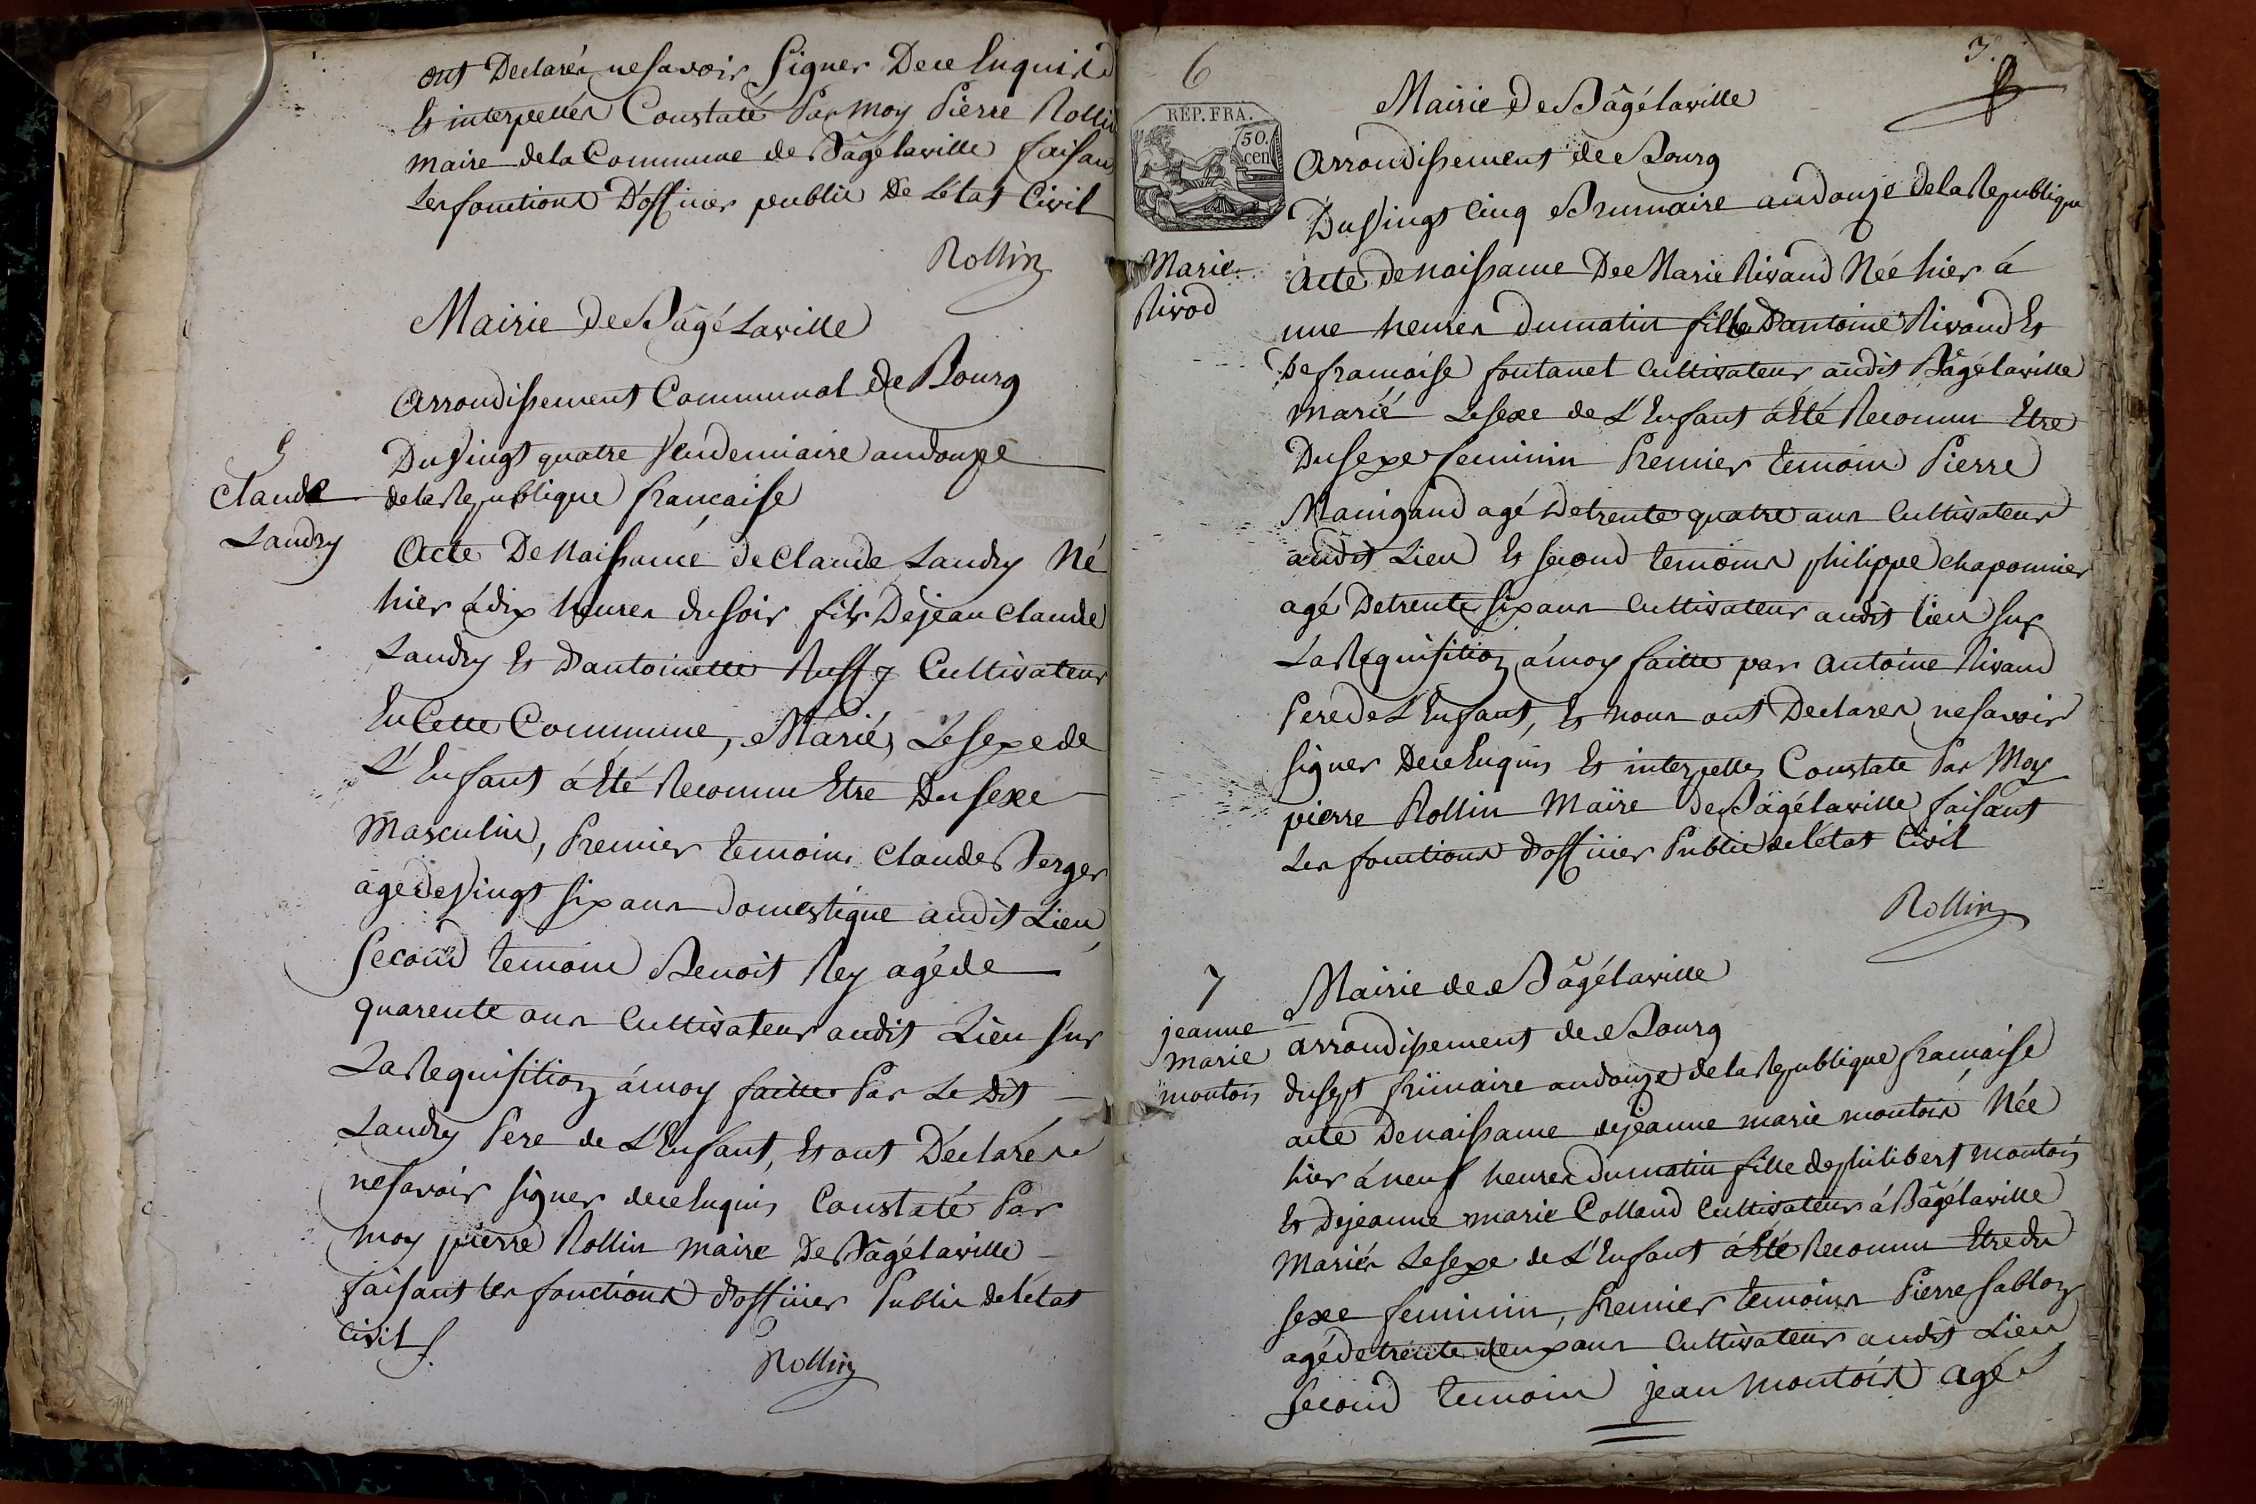 ont Declarés ne savoir Signer De ce Enquis
Et interpellés Constaté Par moy Pierre Rollin
maire de la Commune de Bâgélaville faisant
Les fonctions D'officier public De L'état Civil
Rollin
Mairie De Bâgé Laville
Arrondissement Communal de Bourg
5
Claude
Landry
Du Vingt quatre Vendemiaire an douze
de la Republique francaise
Acte De Naissance de Claude Landry Né
hier à dix heures du soir fils De jean claude
Landry Et D'antoinette Ruffy Cultivateur
En Cette Commune, Mariés, Le sexe de
L'Enfant à Eté Reconnu Etre Du sexe
Masculin, Premier temoins Claude Berger
agé de Vingt six ans Domestique audit Lieu
Second temoin Benoit Rey agé de
quarente ans Cultivateur audit Lieu sur
La Requisition à moy faitte Par Le Dit
Landry Pere de L'Enfant, Et ont Déclarés
ne savoir signer de ce Enquis Constaté Par
moy pierre Rollin maire De Bâgélaville
faisant les fonctions d'officier Public de l'état
Civil
Rollin
3.
6
REP. FRA.
50
cen
Mairie De Bâgélaville
Arrondissement de Bourg
Du Vingt Cinq Brumaire an douze de la Republique
Marie
Rivod
Acte de naissance De Marie Rivaud Née hier à
une heures du matin fille D'antoine Rivaud Et
De francoise fontanel Cultivateur audit Bâgélaville
marié Le sexe de L'Enfant à Eté Reconnu Etre
Du sexe feminin Premier temoin Pierre
Mainigaud agé De trente quatre ans Cultivateur
audit Lieu Et second temoins philippe chaponnier
agé De trente six ans Cultivateur audit lieu sur
La Requisition à moy faitte par Antoine Rivaud
Pere De L'Enfant, Et nous ont Declarés ne savoir
signer De ce Enquis Et interpellés Constate Par Moy
pierre Rollin Maire De Bâgélaville faisant
Les fonctions d'officier Public de l'état Civil
Rollin
7
Mairie de Bâgélaville
jeanne
marie
montois
arrondissement de Bourg
du sept frimaire an douze de la Republique francaise
acte De naissance de jeanne marie montois Née
hier à neuf heures du matin fille de philibert montois
Et De jeanne marie Colland Cultivateur à Bâgélaville
Mariés Le sexe de L'Enfant à Eté Reconnu Etre du
sexe feminin, Premier temoins Pierre sablon
agé de trente deux ans Cultivateur audit Lieu
second temoin jean montois agé